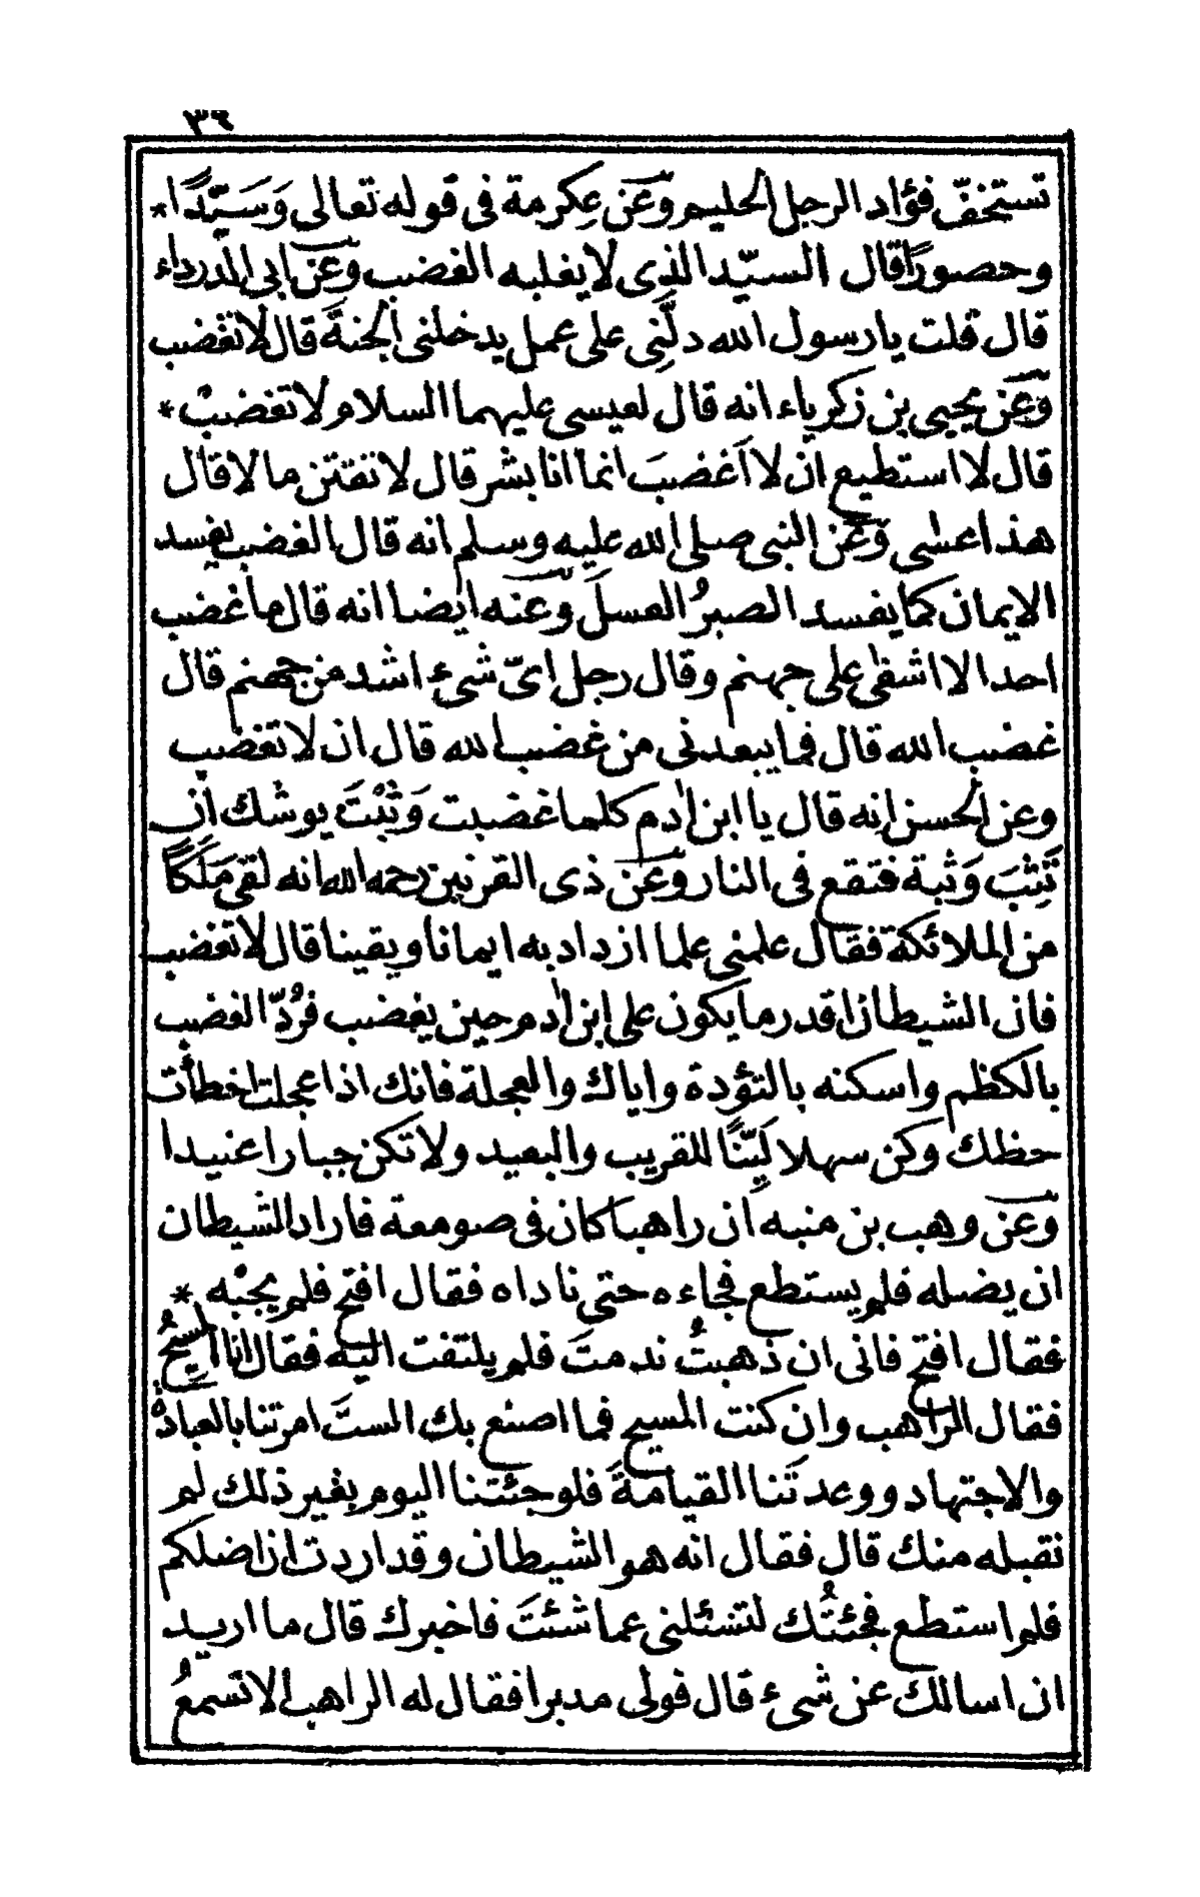 ٣٦
تستخفّ فؤاد الرجل الحليم وعن عكرمة في قوله تعالى وَسَيِّدًا *
وحصورًا قال السيّد الذى لا يغلبه الغضب وعن ابى الدرداء
قال قلت يا رسول الله دلَّنِى على عمل يدخلنى الجنةَ قال لا تغضب
وعن يحيى بن زكرياء انه قال لعيسى عليهما السلام لا تغضبْ *
قال لا استطيع ان لا اغضبَ انما انا بشر قال لا تقتنِ مالا قال
هذا عسٰى وعن النبى صلى الله عليه وسلم انه قال الغضب يفسد
الايمان كما يفسد الصبرُ العسلَ وعنه ايضا انه قال ما غضب
احد الا اشفٰى على جهنم وقال رجل اىّ شىء اشد من جهنم قال
غضب الله قال فما يبعدنى من غضب الله قال ان لا تغضب
وعن الحسن انه قال يا ابن اٰدم كلما غضبت وَثَبْتَ يوشك ان
تَثِبَ وَثبة فتقع فى النار وعن ذى القرنين رحمه الله انه لقى مَلَكًا
من الملائكة فقال علمنى علما ازداد به ايمانا ويقينا قال لا تغضب
فان الشيطان اقدر ما يكون على ابن اٰدم حين يغضب فرُدّ الغضب
بالكظم واسكنه بالتؤدة واياك والعجلة فانك اذا عجلت اخطأت
حظك وكن سهلا لَيِّنًا للقريب والبعيد ولا تكن جبارا عنيدا
وعن وهب بن منبه ان راهبا كان فى صومعة فاراد الشيطان
ان يضله فلم يستطع فجاءه حتى ناداه فقال افتح فلم يجبْه *
فقال افتح فانى ان ذهبتُ ندمتَ فلم يلتفت اليه فقال انا المسيحُ
فقال الراهب وان كنت المسيح فما اصنع بك الستَ امرتنا بالعبادة
والاجتهاد ووعدتَنا القيامةَ فلو جئتنا اليوم بغير ذلك لم
نقبله منك قال فقال انه هو الشيطان وقد اردت ان اضلكم
فلم استطع فجئتُك لتسئلنى عما شئتَ فاخبرك قال ما اريد
ان اسالك عن شىء قال فولى مدبرا فقال له الراهب الا تسمعُ